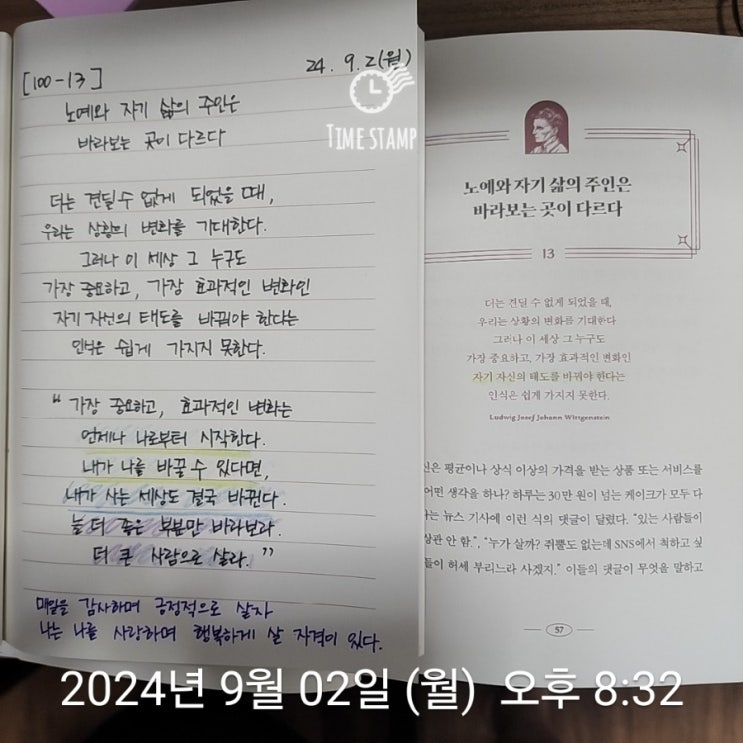 [100-13]
24. 9. 2(월)
TIME STAMP
노예와 자기 삶의 주인은
바라보는 곳이 다르다
더는 견딜 수 없게 되었을 때,
우리는 상황의 변화를 기대한다.
그러나 이 세상 그 누구도
가장 중요하고, 가장 효과적인 변화인
자기 자신의 태도를 바꿔야 한다는
인식은 쉽게 가지지 못한다.
“ 가장 중요하고, 효과적인 변화는
언제나 나로부터 시작한다.
내가 나를 바꿀 수 있다면,
내가 사는 세상도 결국 바뀐다.
늘 더 좋은 부분만 바라보라.
더 큰 사람으로 살라. ”
매일을 감사하며 긍정적으로 살자
나는 나를 사랑하며 행복하게 살 자격이 있다.
노예와 자기 삶의 주인은
바라보는 곳이 다르다
13
더는 견딜 수 없게 되었을 때,
우리는 상황의 변화를 기대한다
그러나 이 세상 그 누구도
가장 중요하고, 가장 효과적인 변화인
자기 자신의 태도를 바꿔야 한다는
인식은 쉽게 가지지 못한다.
Ludwig Josef Johann Wittgenstein
신은 평균이나 상식 이상의 가격을 받는 상품 또는 서비스를
어떤 생각을 하나? 하루는 30만 원이 넘는 케이크가 모두 다
는 뉴스 기사에 이런 식의 댓글이 달렸다. “있는 사람들이
상관 안 함.”, “누가 살까? 쥐뿔도 없는데 SNS에서 척하고 싶
들이 허세 부리느라 사겠지.” 이들의 댓글이 무엇을 말하고
57
2024년 9월 02일 (월) 오후 8:32